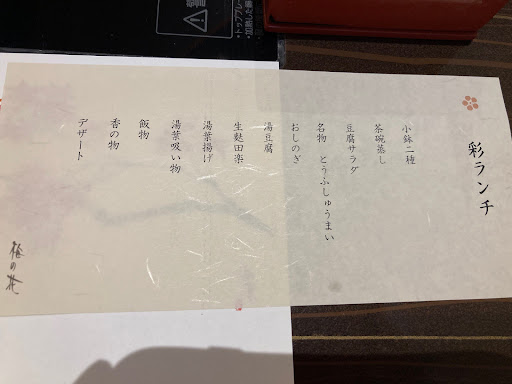 彩ランチ
小鉢二種
茶碗蒸し
豆腐サラダ
名物 とうふしゅうまい
おしのぎ
湯豆腐
生麩田楽
湯葉揚げ
湯葉吸い物
飯物
香の物
デザート
梅の花